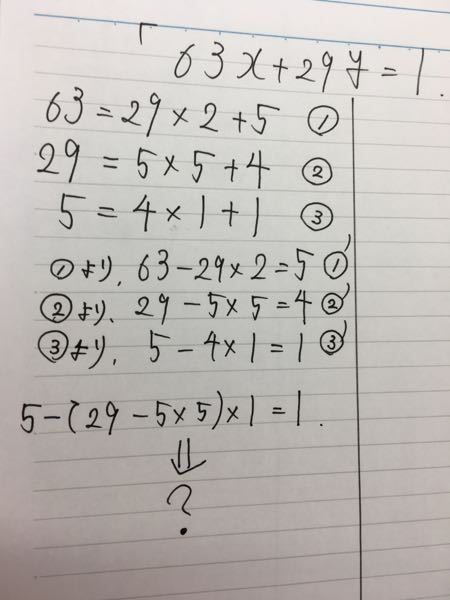 「63x+29y=1.
63=29×2+5 ①
29=5×5+4 ②
5=4×1+1 ③
①より、63-29×2=5 ①'
②より、29-5×5=4 ②'
③より、5-4×1=1 ③'
5-(29-5×5)×1=1.
⇓
?